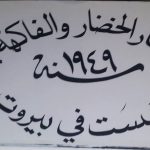 الخضار والفاكهة
سنة ١٩٤٩
في بيروت